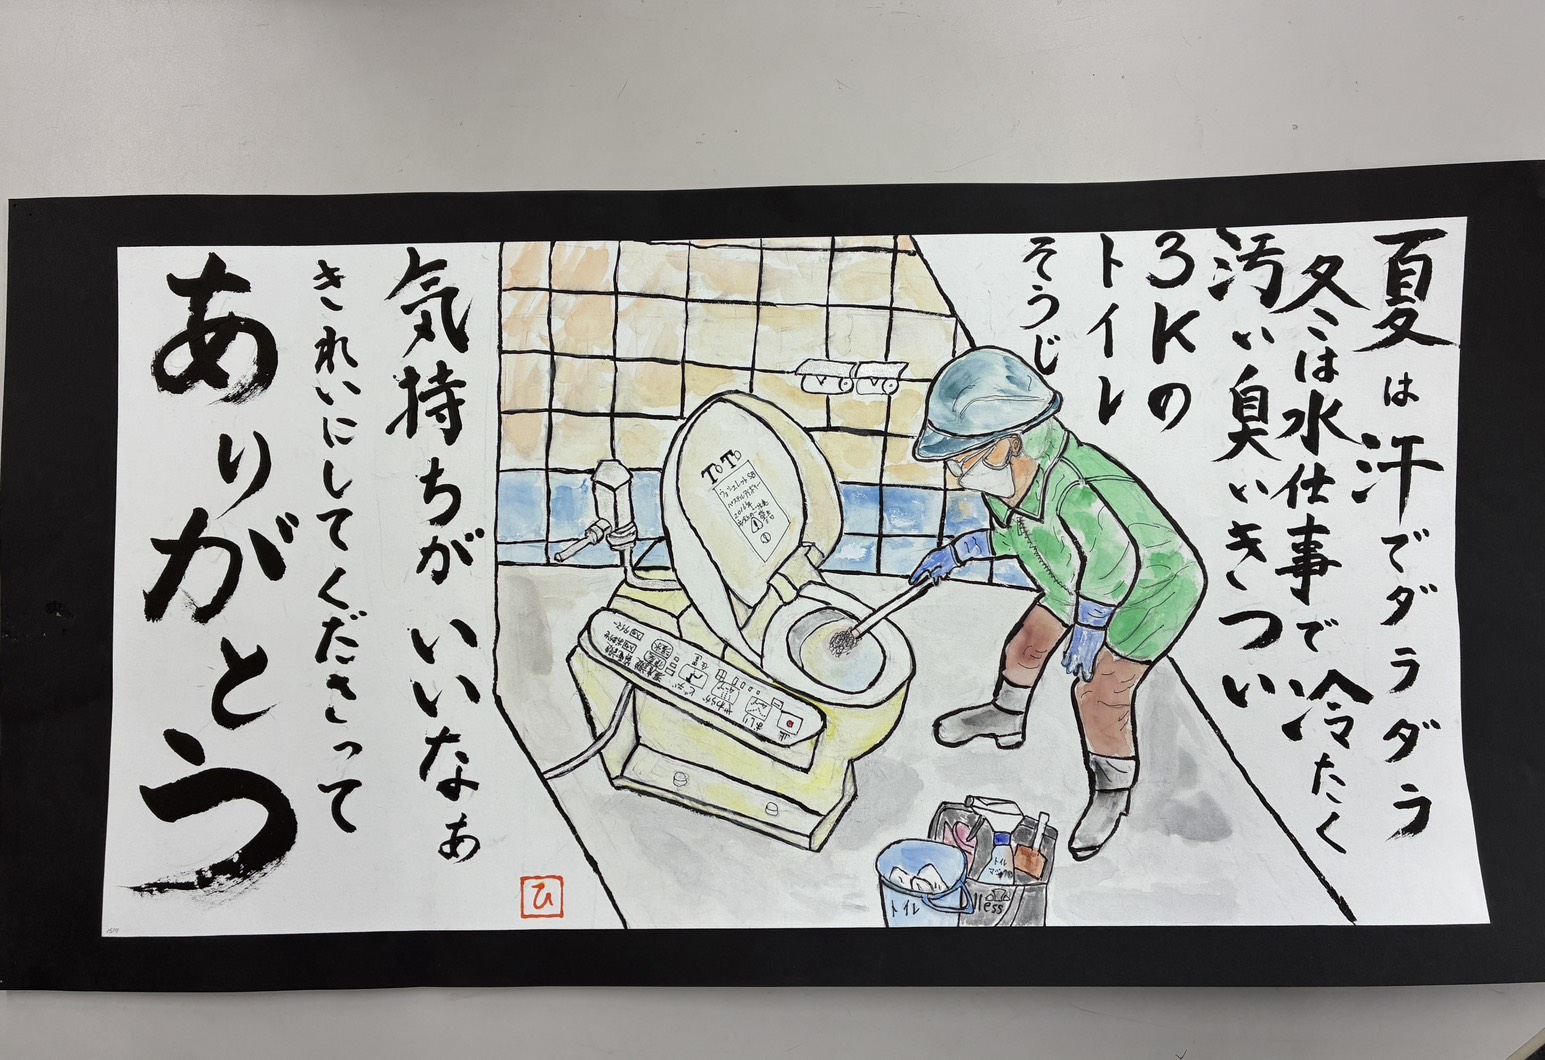 夏は汗でダラダラ
冬は水仕事で冷たく
汚い臭いきつい
3Kの
トイレ
そうじ
気持ちがいいなぁ
きれいにしてくださって
ありがとう
TOTO
トイレ
トイレ
ひ